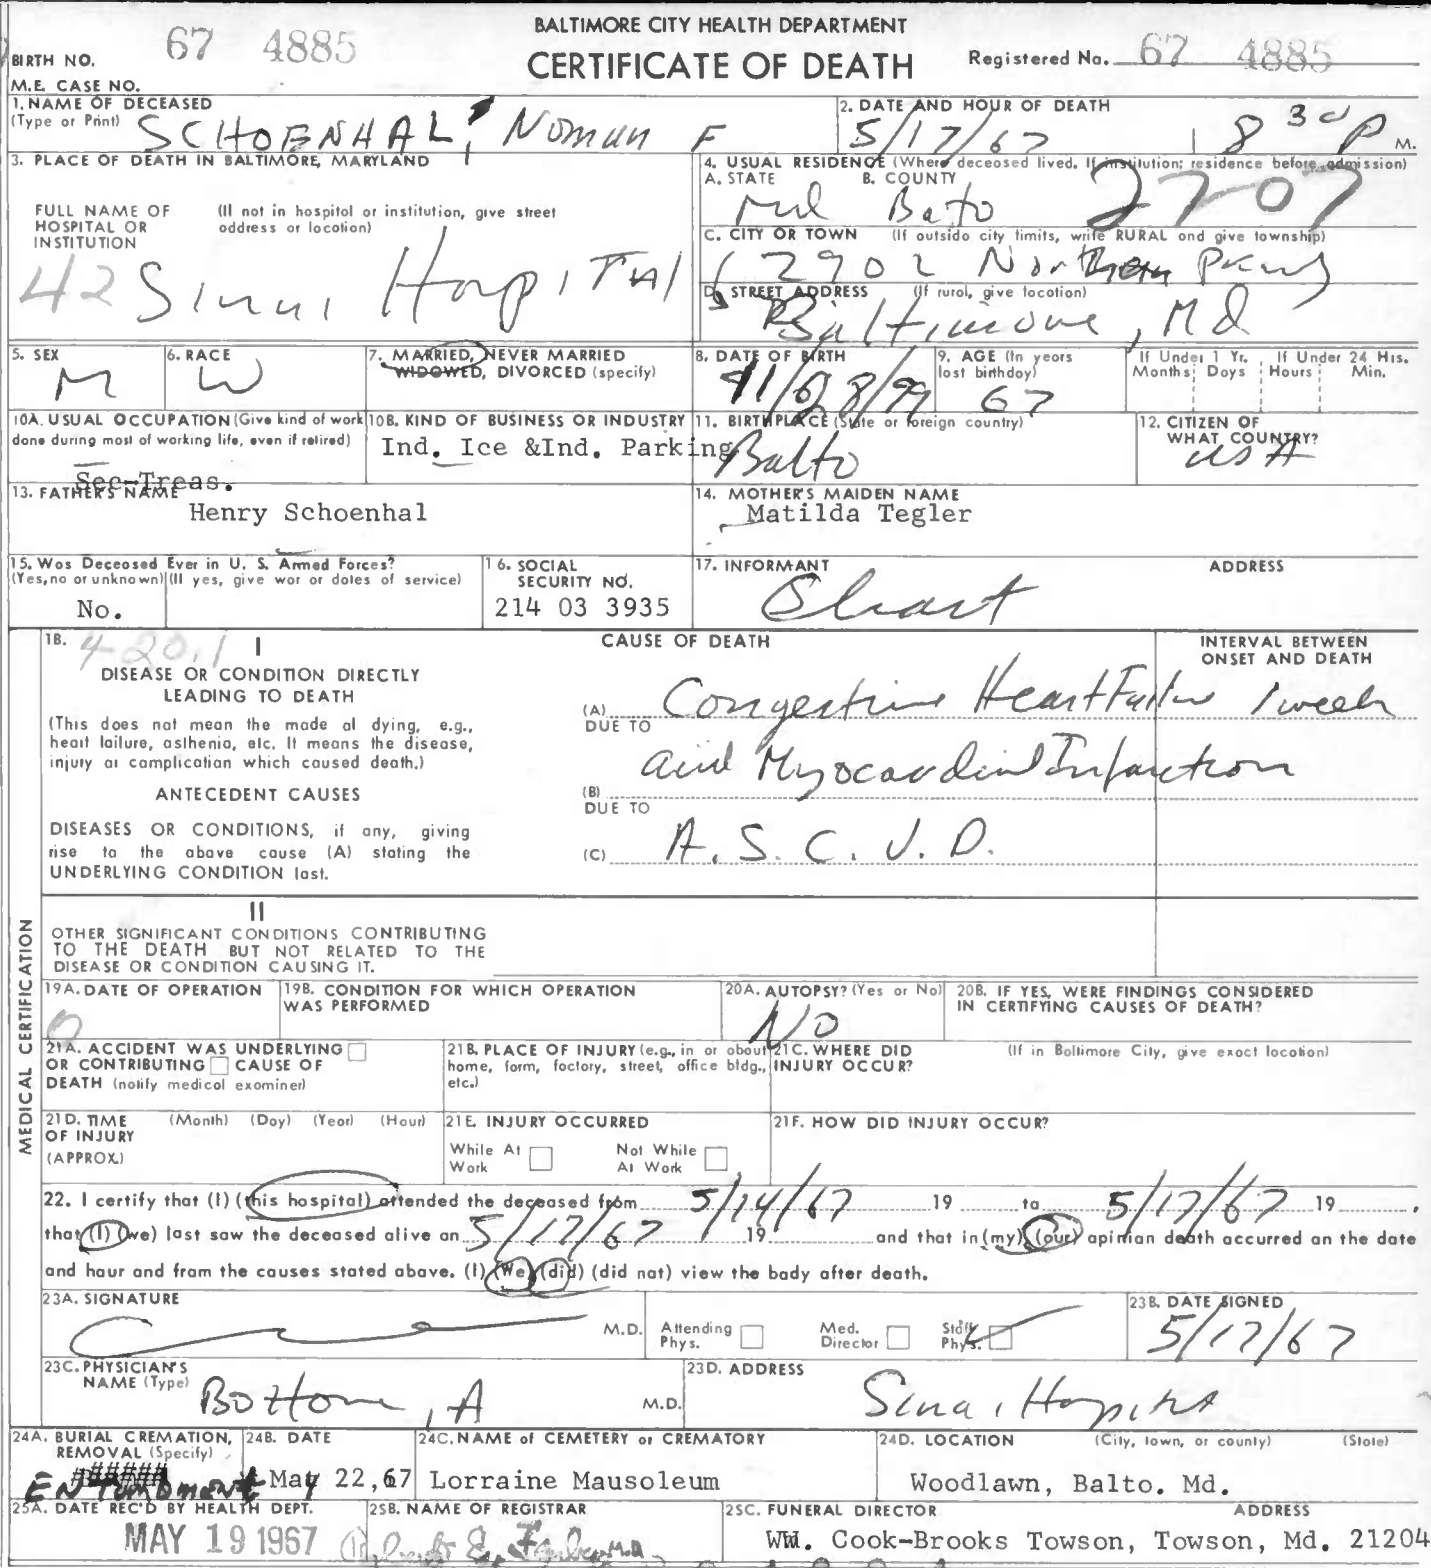 BALTIMORE CITY HEALTH DEPARTMENT
CERTIFICATE OF DEATH
BIRTH NO. 67 4885
Registered No. 67 4885
M.E. CASE NO.
1. NAME OF DECEASED
(Type or Print) SCHOENHAL, Noman F
2. DATE AND HOUR OF DEATH
5/17/67 8 30 P M.
3. PLACE OF DEATH IN BALTIMORE, MARYLAND
FULL NAME OF HOSPITAL OR INSTITUTION
(If not in hospital or institution, give street address or location)
42 Sinai Hospital
4. USUAL RESIDENCE (Where deceased lived. If institution: residence before admission)
A. STATE B. COUNTY
Md Balto 2707
C. CITY OR TOWN (If outside city limits, write RURAL and give township)
2902 Northern Pkwy
D. STREET ADDRESS (If rural, give location)
Baltimore, Md
5. SEX
M
6. RACE
W
7. MARRIED, NEVER MARRIED
WIDOWED, DIVORCED (specify)
8. DATE OF BIRTH
11/28/99
9. AGE (In years last birthday)
67
If Under 1 Yr.
Months Days
If Under 24 Hrs.
Hours Min.
10A. USUAL OCCUPATION (Give kind of work
done during most of working life, even if retired)
Sec-Treas.
10B. KIND OF BUSINESS OR INDUSTRY
Ind. Ice &Ind. Parking
11. BIRTHPLACE (State or foreign country)
Balto
12. CITIZEN OF
WHAT COUNTRY?
USA
13. FATHER'S NAME
Henry Schoenhal
14. MOTHER'S MAIDEN NAME
Matilda Tegler
15. Was Deceased Ever in U. S. Armed Forces?
(Yes, no or unknown) (If yes, give war or dates of service)
No.
16. SOCIAL
SECURITY NO.
214 03 3935
17. INFORMANT ADDRESS
Chart
MEDICAL CERTIFICATION
18. 420.1
I
CAUSE OF DEATH
INTERVAL BETWEEN
ONSET AND DEATH
DISEASE OR CONDITION DIRECTLY
LEADING TO DEATH
(This does not mean the mode of dying, e.g.,
heart failure, asthenia, etc. It means the disease,
injury or complication which caused death.)
(A) Congestive Heart Failure 1 week
DUE TO
and Myocardial Infarction
ANTECEDENT CAUSES
(B)
DUE TO
DISEASES OR CONDITIONS, if any, giving
rise to the above cause (A) stating the
UNDERLYING CONDITION last.
(C) A.S.C.V.D.
II
OTHER SIGNIFICANT CONDITIONS CONTRIBUTING
TO THE DEATH BUT NOT RELATED TO THE
DISEASE OR CONDITION CAUSING IT.
19A. DATE OF OPERATION
0
19B. CONDITION FOR WHICH OPERATION
WAS PERFORMED
20A. AUTOPSY? (Yes or No)
NO
20B. IF YES, WERE FINDINGS CONSIDERED
IN CERTIFYING CAUSES OF DEATH?
21A. ACCIDENT WAS UNDERLYING
OR CONTRIBUTING CAUSE OF
DEATH (notify medical examiner)
21B. PLACE OF INJURY (e.g., in or about
home, farm, factory, street, office bldg.,
etc.)
21C. WHERE DID
INJURY OCCUR?
(If in Baltimore City, give exact location)
21D. TIME
OF INJURY
(APPROX.)
(Month) (Day) (Year) (Hour)
21E. INJURY OCCURRED
While At
Work
Not While
At Work
21F. HOW DID INJURY OCCUR?
22. I certify that (I) (this hospital) attended the deceased from 5/14/67 19 to 5/17/67 19 ,
that (I) (we) last saw the deceased alive on 5/17/67 19 and that in (my) (our) opinion death occurred on the date
and hour and from the causes stated above. (I) (We) (did) (did not) view the body after death.
23A. SIGNATURE
M.D.
Attending
Phys.
Med.
Director
Staff
Phys.
23B. DATE SIGNED
5/17/67
23C. PHYSICIAN'S
NAME (Type)
Bottom, A M.D.
23D. ADDRESS
Sinai Hospital
24A. BURIAL CREMATION,
REMOVAL (Specify)
######
ENTombment
24B. DATE
May 22,67
24C. NAME of CEMETERY or CREMATORY
Lorraine Mausoleum
24D. LOCATION (City, town, or county) (State)
Woodlawn, Balto. Md.
25A. DATE REC'D BY HEALTH DEPT.
MAY 19 1967
25B. NAME OF REGISTRAR
Robert E. Farber M.D.
25C. FUNERAL DIRECTOR ADDRESS
Wm. Cook-Brooks Towson, Towson, Md. 21204